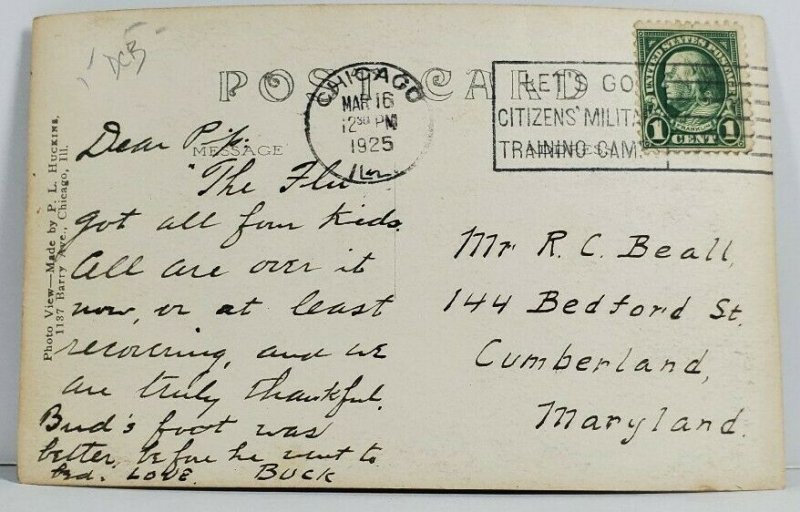 DCB
POST CARD
CHICAGO
MAR 16
12 30 PM
1925
ILL.
LET'S GO
CITIZENS' MILITA
TRAINING CAM
UNITED STATES POSTAGE
FRANKLIN
1 CENT 1
Photo View—Made by P. L. HUCKINS,
1137 Barry Ave., Chicago, Ill.
MESSAGE
Dear
"The Flu"
got all four kids.
All are over it
now, or at least
recovering, and we
are truly thankful.
Bud's foot was
better, before he went to
bed. LOVE. BUCK
Mr R. C. Beall,
144 Bedford St.
Cumberland,
Maryland.